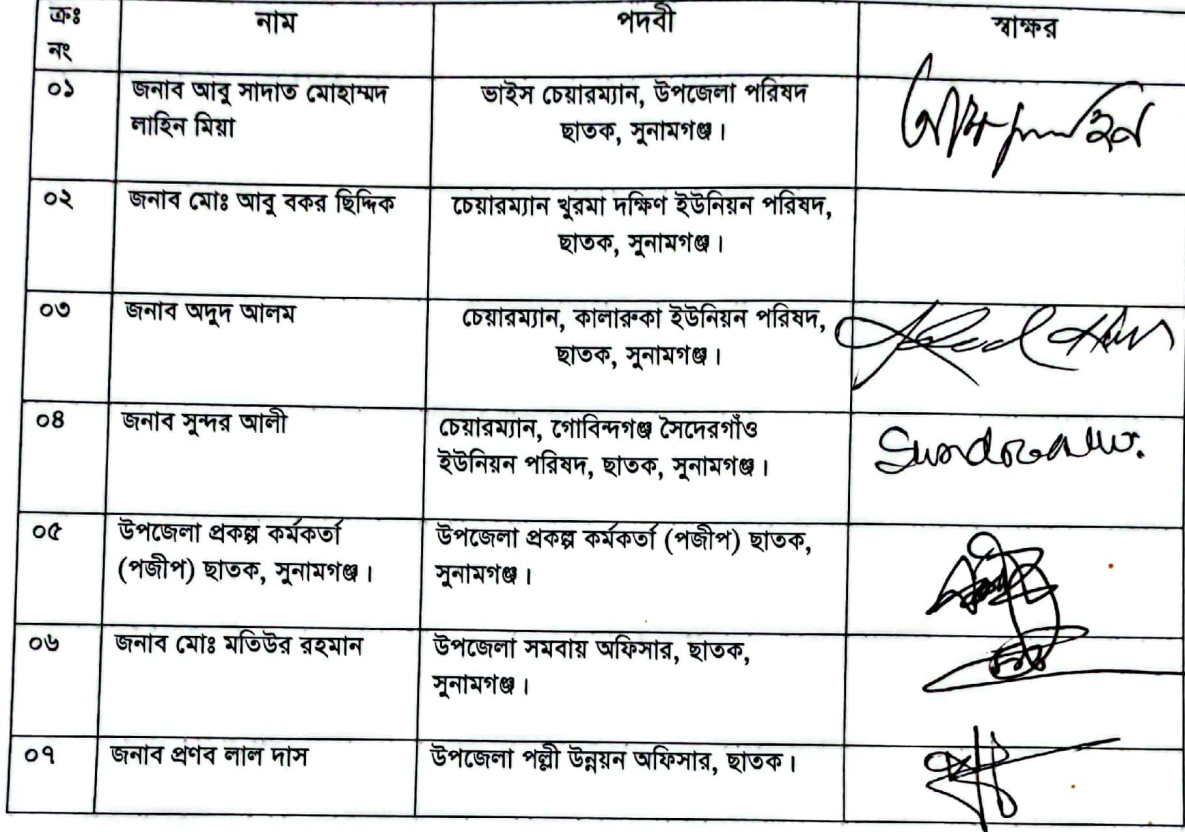 ক্রঃ নাম পদবী স্বাক্ষর
নং
০১ জনাব আবু সাদাত মোহাম্মদ ভাইস চেয়ারম্যান, উপজেলা পরিষদ
লাহিন মিয়া ছাতক, সুনামগঞ্জ।
০২ জনাব মোঃ আবু বকর ছিদ্দিক চেয়ারম্যান খুরমা দক্ষিণ ইউনিয়ন পরিষদ,
ছাতক, সুনামগঞ্জ।
০৩ জনাব অদুদ আলম চেয়ারম্যান, কালারুকা ইউনিয়ন পরিষদ,
ছাতক, সুনামগঞ্জ।
০৪ জনাব সুন্দর আলী চেয়ারম্যান, গোবিন্দগঞ্জ সৈদেরগাঁও
ইউনিয়ন পরিষদ, ছাতক, সুনামগঞ্জ।
০৫ উপজেলা প্রকল্প কর্মকর্তা উপজেলা প্রকল্প কর্মকর্তা (পজীপ) ছাতক,
(পজীপ) ছাতক, সুনামগঞ্জ। সুনামগঞ্জ।
০৬ জনাব মোঃ মতিউর রহমান উপজেলা সমবায় অফিসার, ছাতক,
সুনামগঞ্জ।
০৭ জনাব প্রণব লাল দাস উপজেলা পল্লী উন্নয়ন অফিসার, ছাতক।